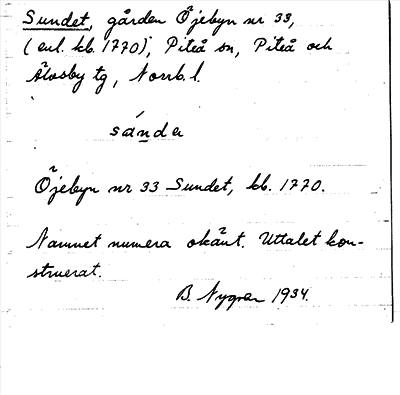 Sundet, gården Öjebyn nr 33,
(enl. kb. 1770), Piteå sn, Piteå och
Älvsby tg, Norrb. l.
sánde
Öjebyn nr 33 Sundet, kb. 1770.
Namnet numera okänt. Uttalet kon-
struerat.
B. Nygren 1934.